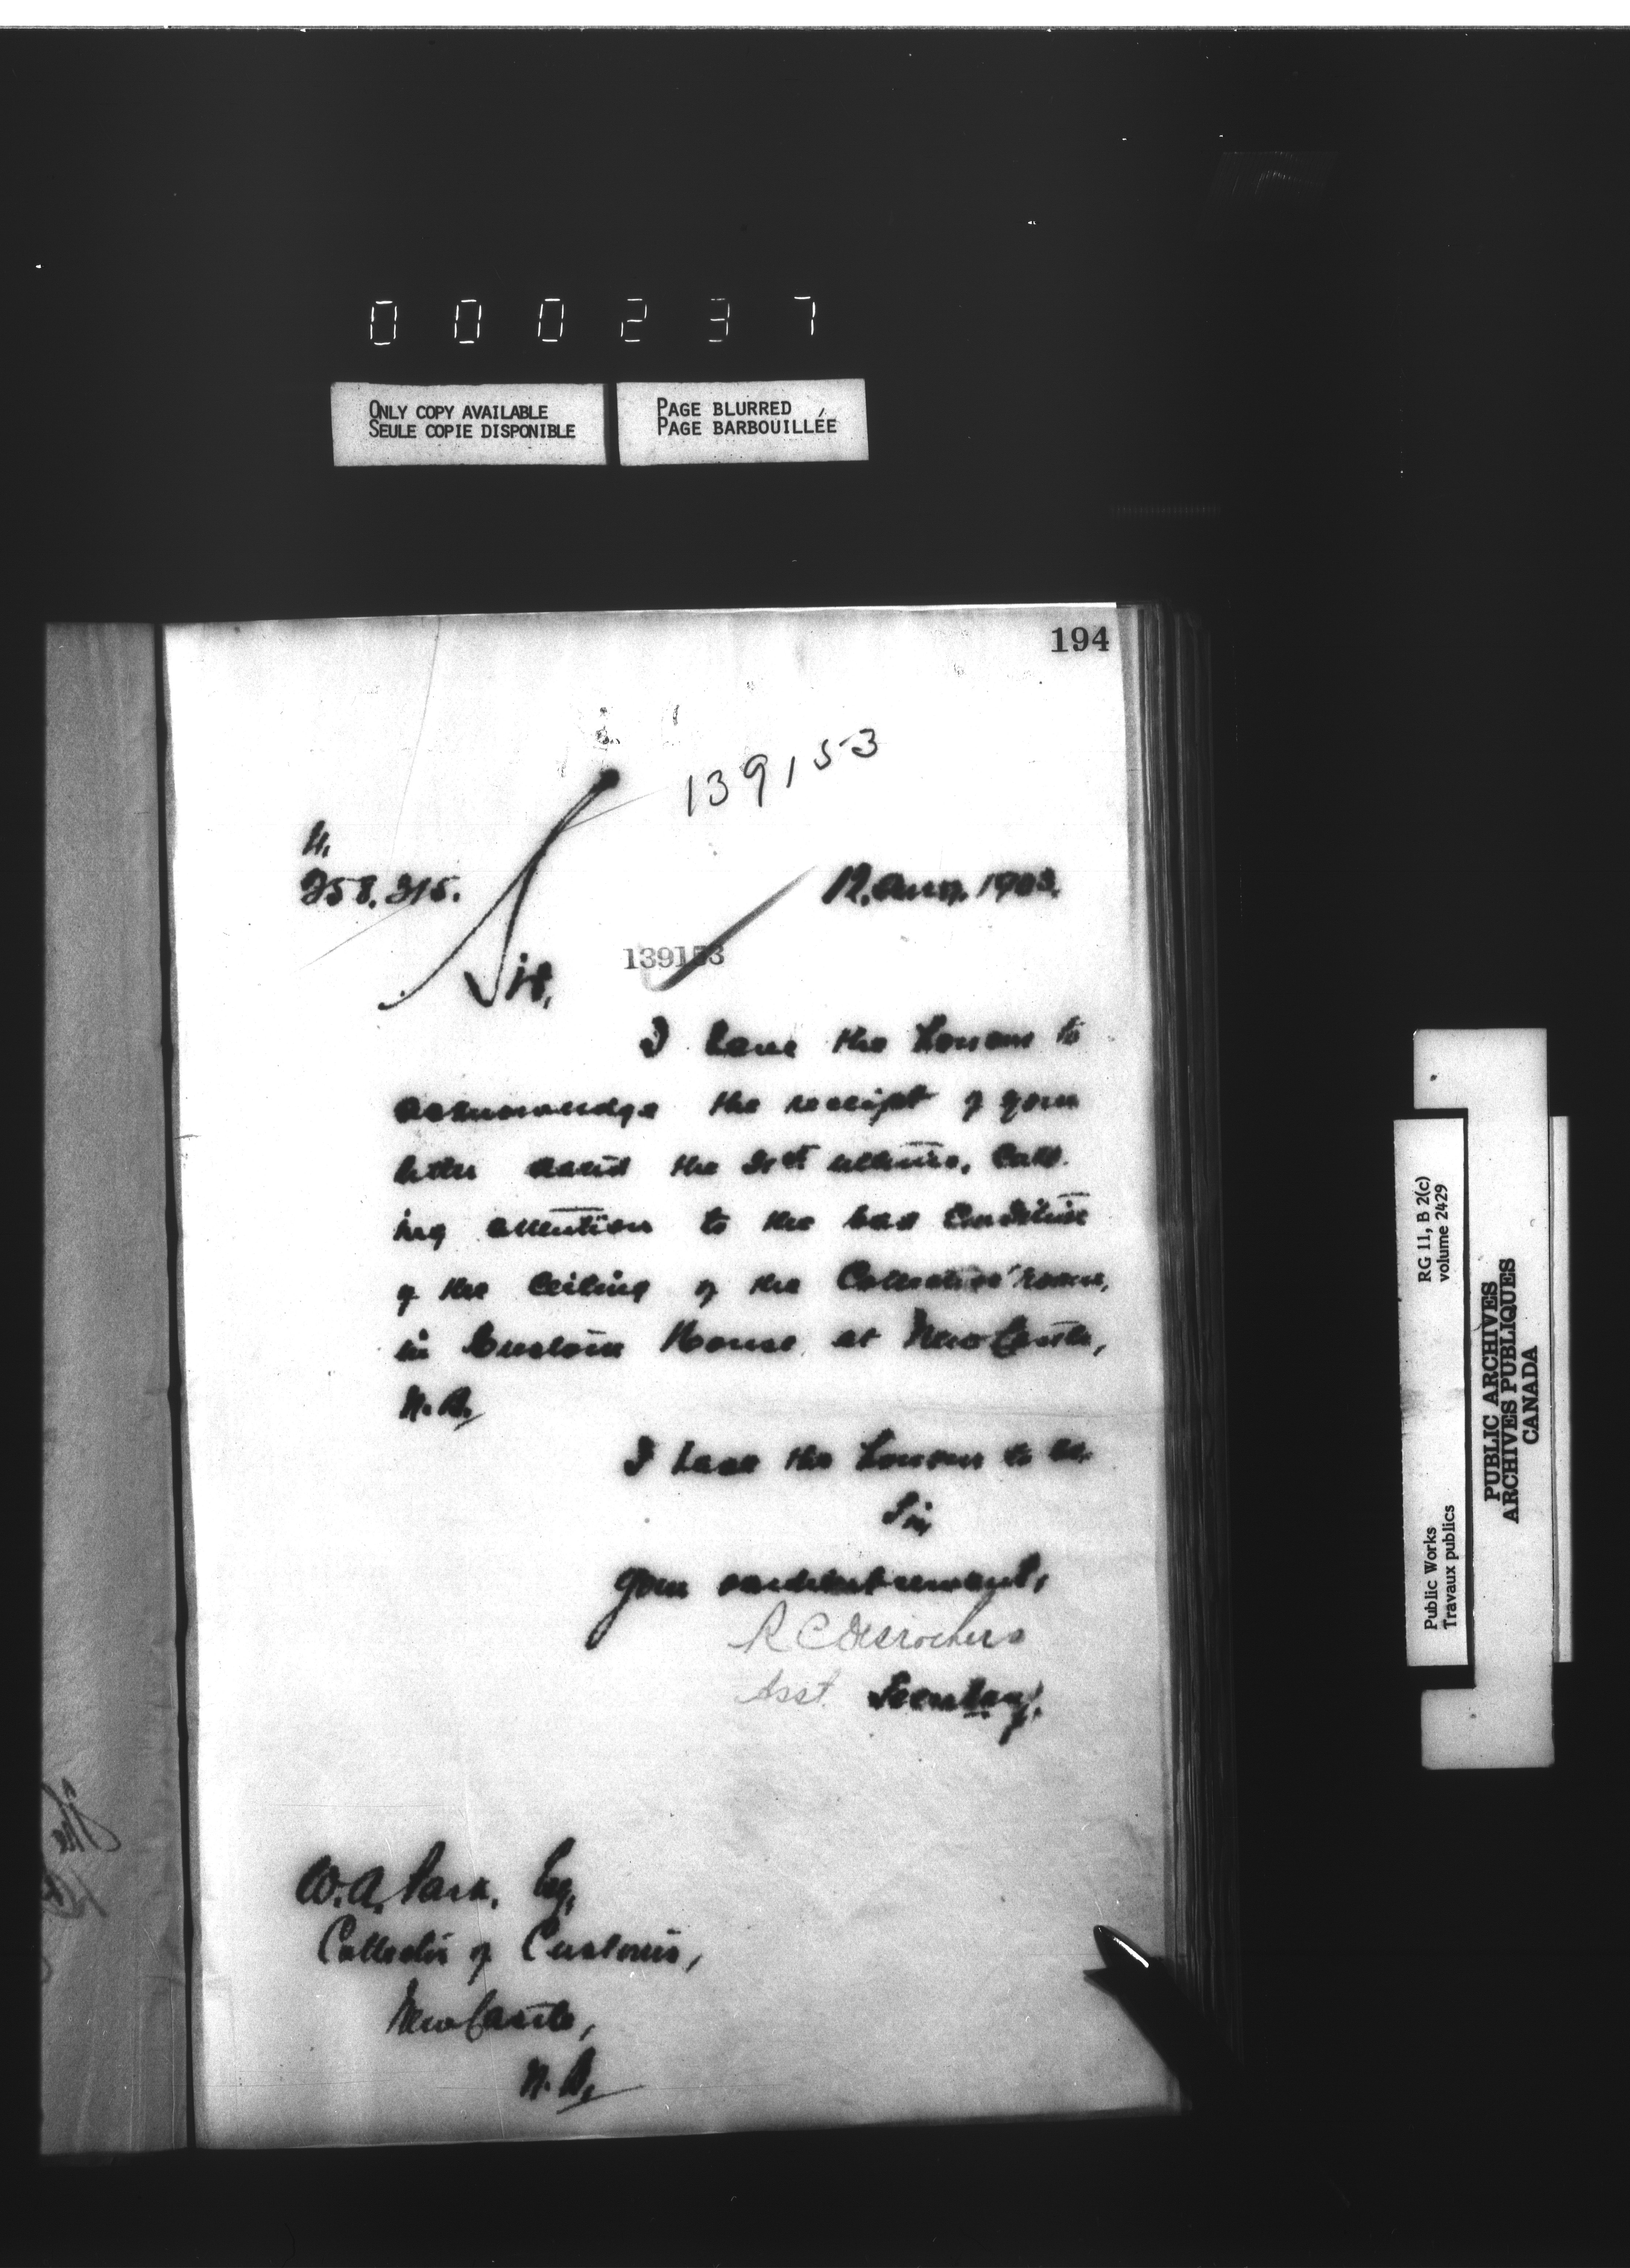 000237
ONLY COPY AVAILABLE
SEULE COPIE DISPONIBLE
PAGE BLURRED
PAGE BARBOUILLÉE
194
139153
H.
258.315.
12. Aug. 1903.
139153
Sir,
I have the honour to
acknowledge the receipt of your
letter dated the 31st ultimo, call-
ing attention to the bad condition
of the ceiling of the Collector's room,
in Custom House at Newcastle,
N.B.
I have the honour to be
Sir,
Your obedient servant,
R C Desrochers
Asst. Secretary.
W.A. Park, Esq,
Collector of Customs,
Newcastle,
N.B.
RG 11, B 2(c)
volume 2429
Public Works
Travaux publics
PUBLIC ARCHIVES
ARCHIVES PUBLIQUES
CANADA